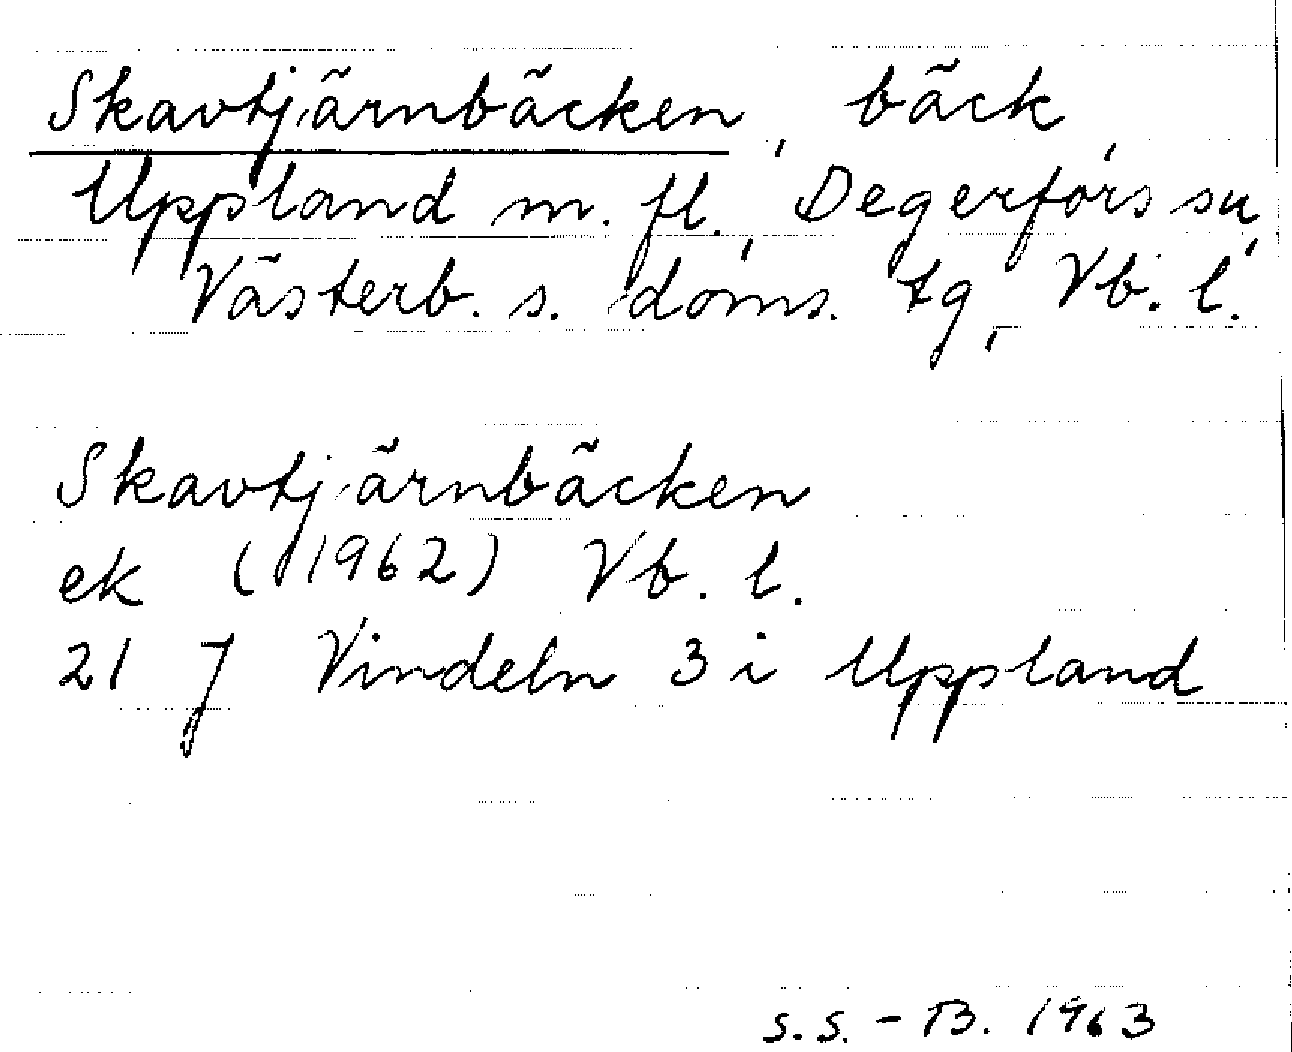 Skavtjärnbäcken, bäck,
Uppland m. fl., Degerfors sn,
Västerb. s. doms. tg, Vb. l.
Skavtjärnbäcken
ek (1962) Vb. l.
21 J Vindeln 3 i Uppland
S.S. - B. 1963